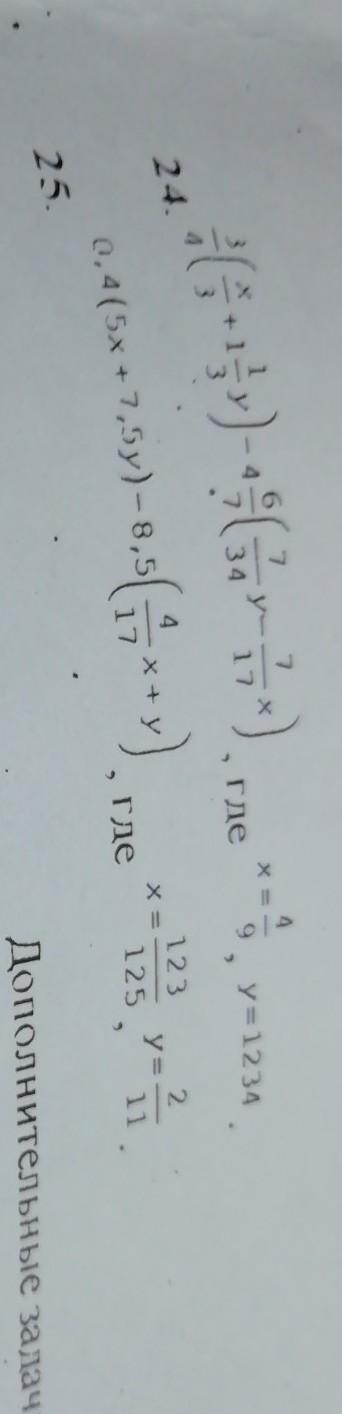 24. 3/4(x/3 + 1 1/3 y) - 4 6/7(7/34 y - 7/17 x), где x = 4/9, y = 1234.
25. 0,4(5x + 7,5y) - 8,5(4/17 x + y), где x = 123/125, y = 2/11.
Дополнительные задач